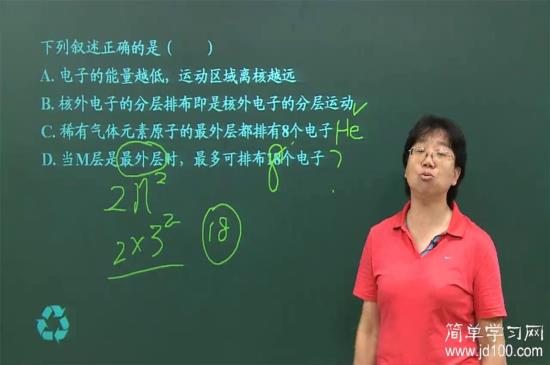 下列叙述正确的是（　　）
A. 电子的能量越低，运动区域离核越远
B. 核外电子的分层排布即是核外电子的分层运动
C. 稀有气体元素原子的最外层都排有8个电子 He
D. 当M层是最外层时，最多可排布18个电子 ?
8
2n²
2×3²
18
简单学习网
www.jd100.com